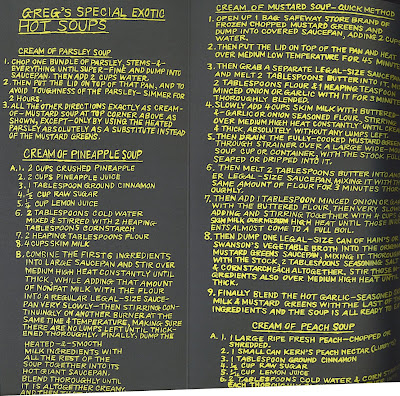 GREG'S SPECIAL EXOTIC
HOT SOUPS
CREAM OF PARSLEY SOUP
1. CHOP ONE BUNDLE OF PARSLEY, STEMS-&-
EVERYTHING UNTIL SUPER-FINE AND DUMP INTO
SAUCEPAN. THEN ADD 2 CUPS WATER.
2. THEN PUT THE LID ON TOP OF THAT PAN, AND TO
AVOID TOUGHNESS OF THE PARSLEY - SIMMER FOR
2 HOURS.
3. ALL THE OTHER DIRECTIONS EXACTLY AS CREAM-
OF-MUSTARD SOUP AT TOP CORNER ABOVE AS
SHOWN, EXCEPT-ONLY BY USING THE HEATED
PARSLEY ABSOLUTELY AS A SUBSTITUTE INSTEAD
OF THE MUSTARD GREENS.
CREAM OF PINEAPPLE SOUP
A. 1. 2 CUPS CRUSHED PINEAPPLE
2. 2 CUPS PINEAPPLE JUICE
3. 1 TABLESPOON GROUND CINNAMON
4. ½ CUP RAW SUGAR
5. ½ CUP LEMON JUICE
6. 2 TABLESPOONS COLD WATER
MIXED & STIRRED WITH 2 HEAPING
TABLESPOONS CORNSTARCH
7. 2 HEAPING TABLESPOONS FLOUR
8. 4 CUPS SKIM MILK
B. COMBINE THE FIRST 6 INGREDIENTS
INTO LARGE SAUCEPAN AND STIR OVER
MEDIUM HIGH HEAT CONSTANTLY UNTIL
THICK, WHILE ADDING THAT AMOUNT
OF NONFAT MILK WITH THE FLOUR
INTO A REGULAR LEGAL-SIZE SAUCE-
PAN VERY SLOWLY-THEN STIRRING CON-
TINUOUSLY ON ANOTHER BURNER AT THE
SAME TIME & TEMPERATURE, MAKING SURE
THERE ARE NO LUMPS LEFT UNTIL THICK-
ENED THOROUGHLY. FINALLY, DUMP THE
HEATED-&-SMOOTH
MILK INGREDIENTS WITH
ALL THE REST OF THE
SOUP TOGETHER INTO ITS
HOT GIANT SAUCEPAN.
BLEND THOROUGHLY UNTIL
IT IS ALTOGETHER CREAMY
CREAM OF MUSTARD SOUP-QUICK METHOD
1. OPEN UP 1 BAG SAFEWAY STORE BRAND OF
FROZEN CHOPPED MUSTARD GREENS AND
DUMP INTO COVERED SAUCEPAN, ADDING 2 CUPS
WATER.
2. THEN PUT THE LID ON TOP OF THE PAN AND HEAT
OVER MEDIUM LOW TEMPERATURE FOR 45 MINUTES
3. THEN GRAB A SEPARATE LEGAL-SIZE SAUCEPAN
AND MELT 2 TABLESPOONS BUTTER INTO IT, MIX
2 TABLESPOONS FLOUR & 1 HEAPING TEASPOON
MINCED ONION OR GARLIC WITH IT FOR 3 MINUTES
THOROUGHLY BLENDED.
4. SLOWLY ADD 4 CUPS SKIM MILK WITH BUTTERED
& GARLIC OR ONION SEASONED FLOUR. STIRRING
OVER MEDIUM HIGH HEAT CONSTANTLY UNTIL CREAMY
& THICK, ABSOLUTELY WITHOUT ANY LUMPS LEFT.
5. THEN DRAIN THE FULLY-COOKED MUSTARD GREENS
THROUGH STRAINER OVER A LARGE WIDE-
SOUP CUP OR CONTAINER, WITH THE STOCK FULLY
SEAPED OR DRIPPED INTO IT.
6. THEN MELT 2 TABLESPOONS BUTTER INTO ANOTH-
ER LEGAL-SIZE SAUCEPAN, MIXING IT WITH THE
SAME AMOUNT OF FLOUR FOR 3 MINUTES THOR-
OUGHLY.
7. THEN ADD 1 TABLESPOON MINCED ONION OR GARLIC
WITH THE BUTTERED FLOUR, THEN VERY SLOWLY
ADDING AND STIRRING TOGETHER WITH 4 CUPS
SKIM MILK OVER MEDIUM HIGH HEAT UNTIL THOSE INGREDI-
ENTS ALMOST COME TO A FULL BOIL.
8. THEN DUMP ONE LEGAL-SIZE CAN OF HAIN'S OR
SWANSON'S VEGETABLE BROTH INTO THE GROUND
MUSTARD GREENS SAUCEPAN, MIXING IT THOROUGHLY
WITH THE STOCK, 2 TABLESPOONS SEASONING SALT
& CORNSTARCH EACH ALTOGETHER. STIR THOSE IN-
GREDIENTS ALSO OVER MEDIUM HIGH HEAT UNTIL
THICK.
9. FINALLY BLEND THE HOT GARLIC-SEASONED
MILK & MUSTARD GREENS WITH THE LAST
INGREDIENTS AND THE SOUP IS ALL READY TO
CREAM OF PEACH SOUP
A. 1. 1 LARGE RIPE FRESH PEACH-CHOPPED OR
SHREDDED.
2. 1 SMALL CAN KERN'S PEACH NECTAR
3. 1 TABLESPOON GROUND CINNAMON
4. ½ CUP RAW SUGAR
5. ½ CUP LEMON JUICE
6. 2 TABLESPOONS COLD WATER & CORN
EACH THOROUGHLY